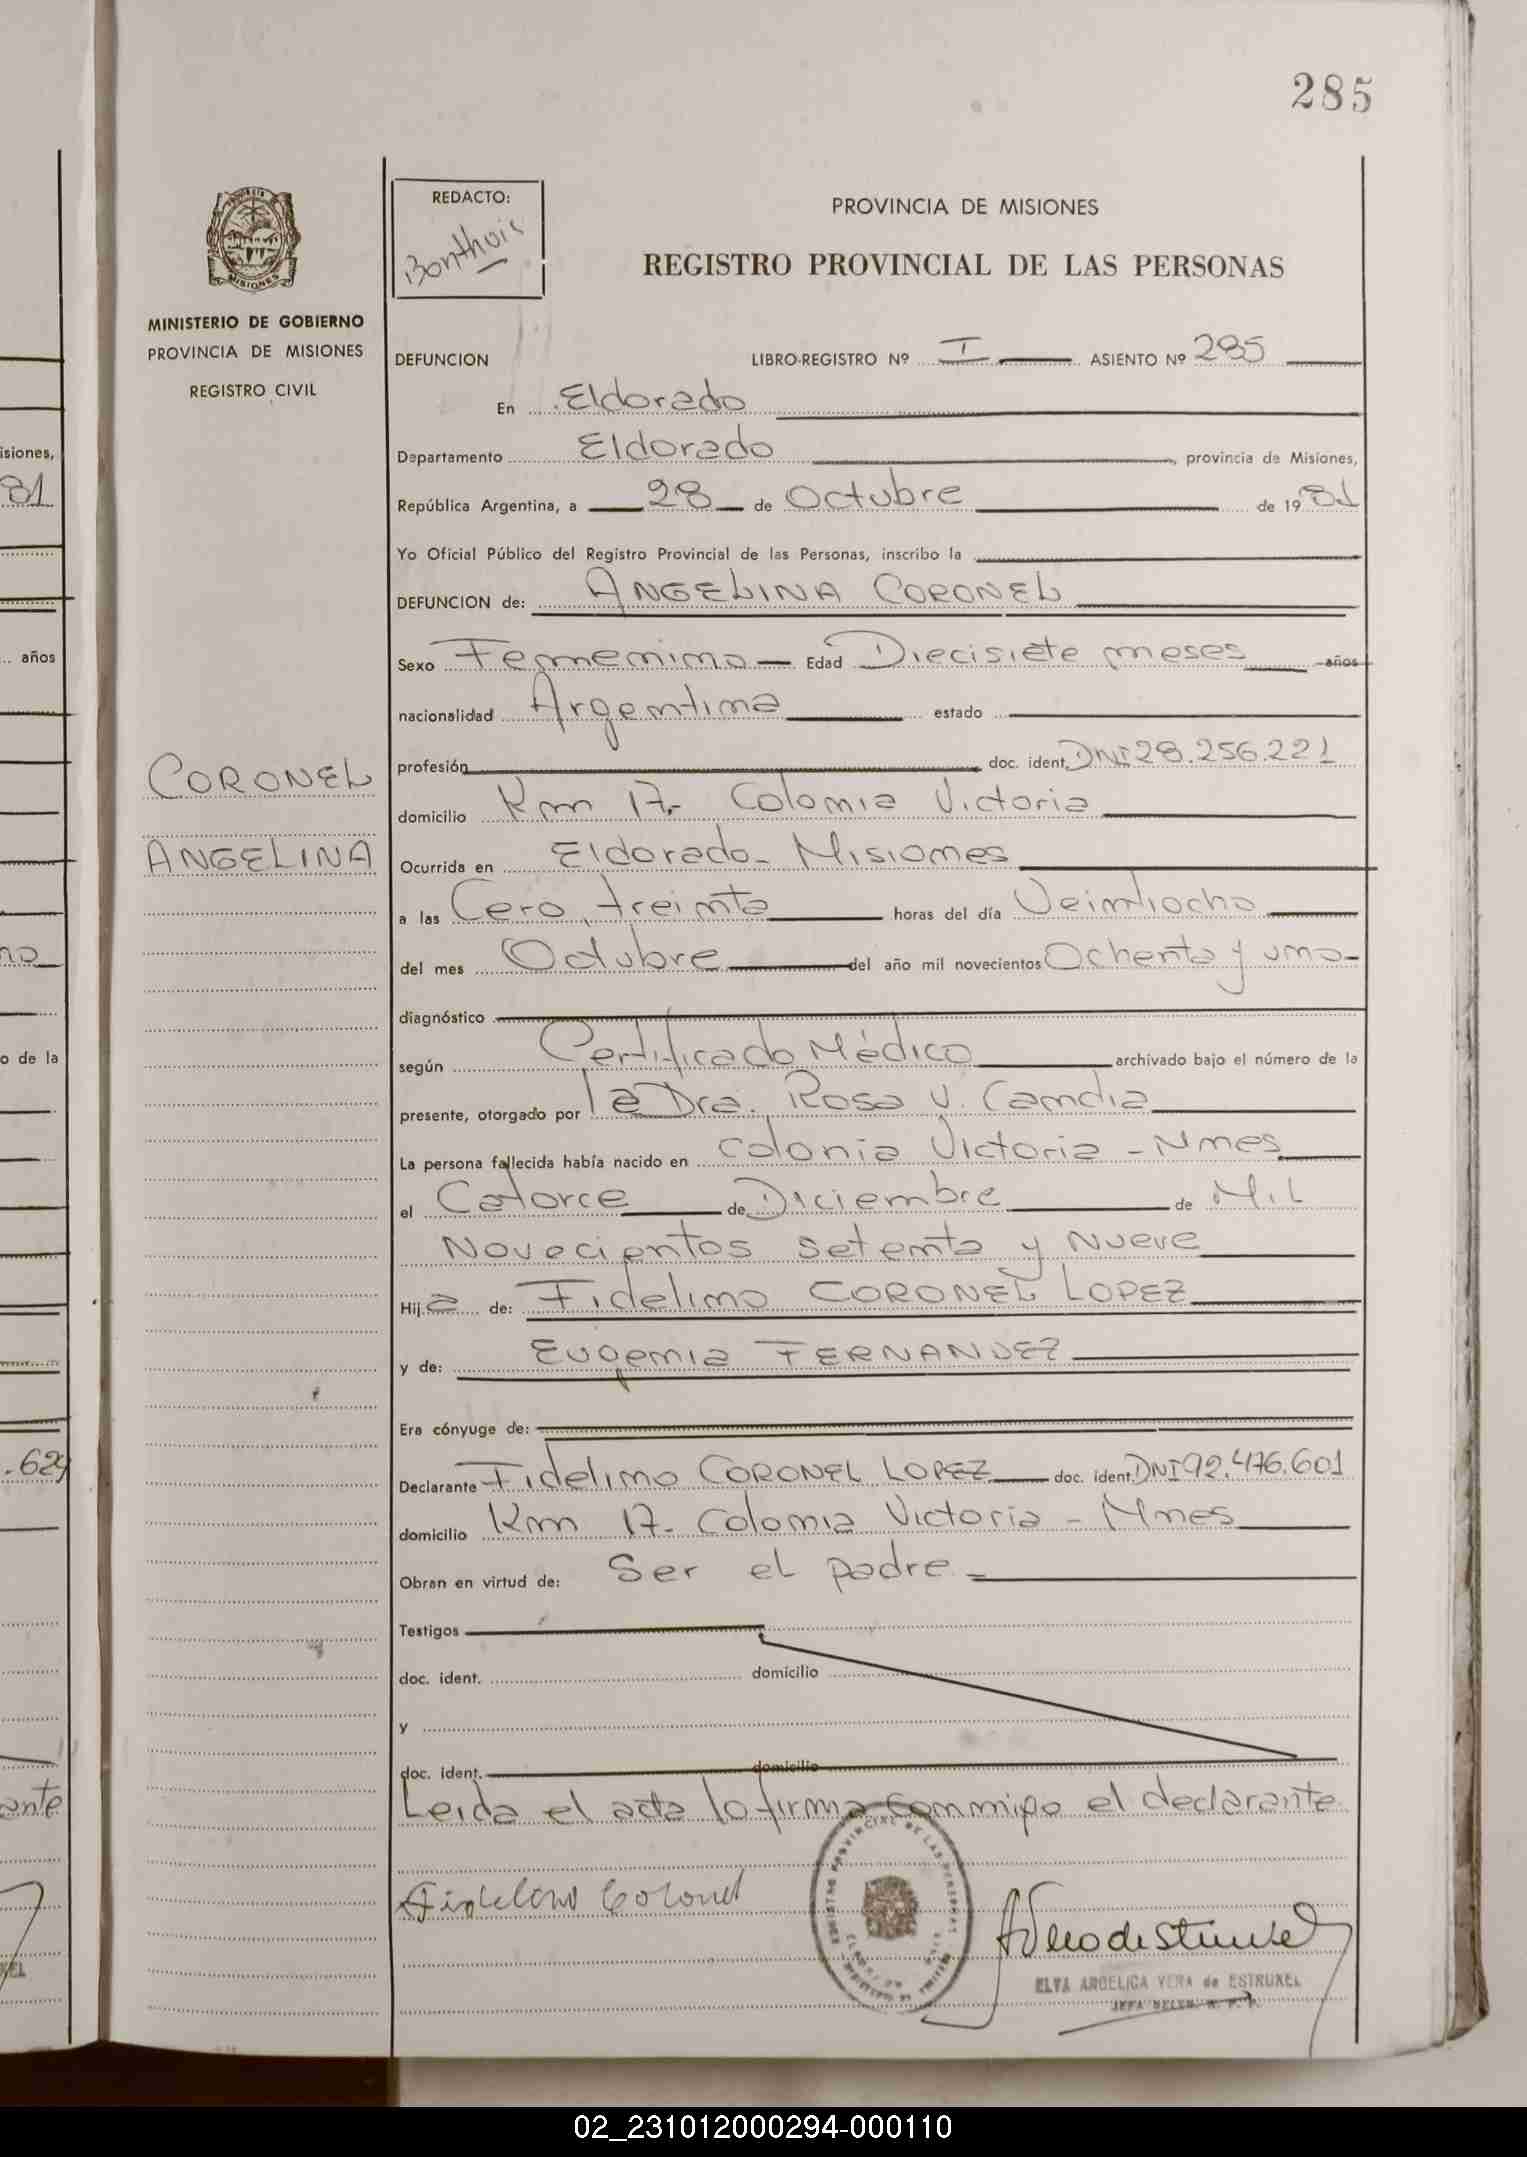 285
REDACTO:
Bonthuis
PROVINCIA DE MISIONES
REGISTRO PROVINCIAL DE LAS PERSONAS
MINISTERIO DE GOBIERNO
PROVINCIA DE MISIONES
REGISTRO CIVIL
DEFUNCION LIBRO-REGISTRO Nº I ASIENTO Nº 285
En Eldorado
Departamento Eldorado, provincia de Misiones,
República Argentina, a 28 de Octubre de 1981
Yo Oficial Público del Registro Provincial de las Personas, inscribo la
DEFUNCION de: ANGELINA CORONEL
Sexo Femenino Edad Diecisiete meses años
nacionalidad Argentina estado
profesión doc. ident. DNI 28.256.221
CORONEL
domicilio Km 17. Colonia Victoria
ANGELINA
Ocurrida en Eldorado - Misiones
a las Cero, treinta horas del día Veintiocho
del mes Octubre del año mil novecientos Ochenta y uno-
diagnóstico
según Certificado Médico archivado bajo el número de la
presente, otorgado por la Dra. Rosa V. Candia
La persona fallecida había nacido en Colonia Victoria - Mnes
el Catorce de Diciembre de Mil
Novecientos setenta y Nueve
Hija de: Fidelino CORONEL LOPEZ
y de: Eugenia FERNANDEZ
Era cónyuge de:
Declarante Fidelino CORONEL LOPEZ doc. ident. DNI 92.476.601
domicilio Km 17. Colonia Victoria - Mnes
Obran en virtud de: Ser el padre.-
Testigos
doc. ident. domicilio
y
doc. ident. domicilio
Leida el acta lo firma conmigo el declarante
Fidelino Coronel
REGISTRO PROVINCIAL DE LAS PERSONAS
ELVA ANGELICA VERA de ESTRUXEL
isiones,
81
años
no
o de la
.629
ante
XEL
02_231012000294-000110